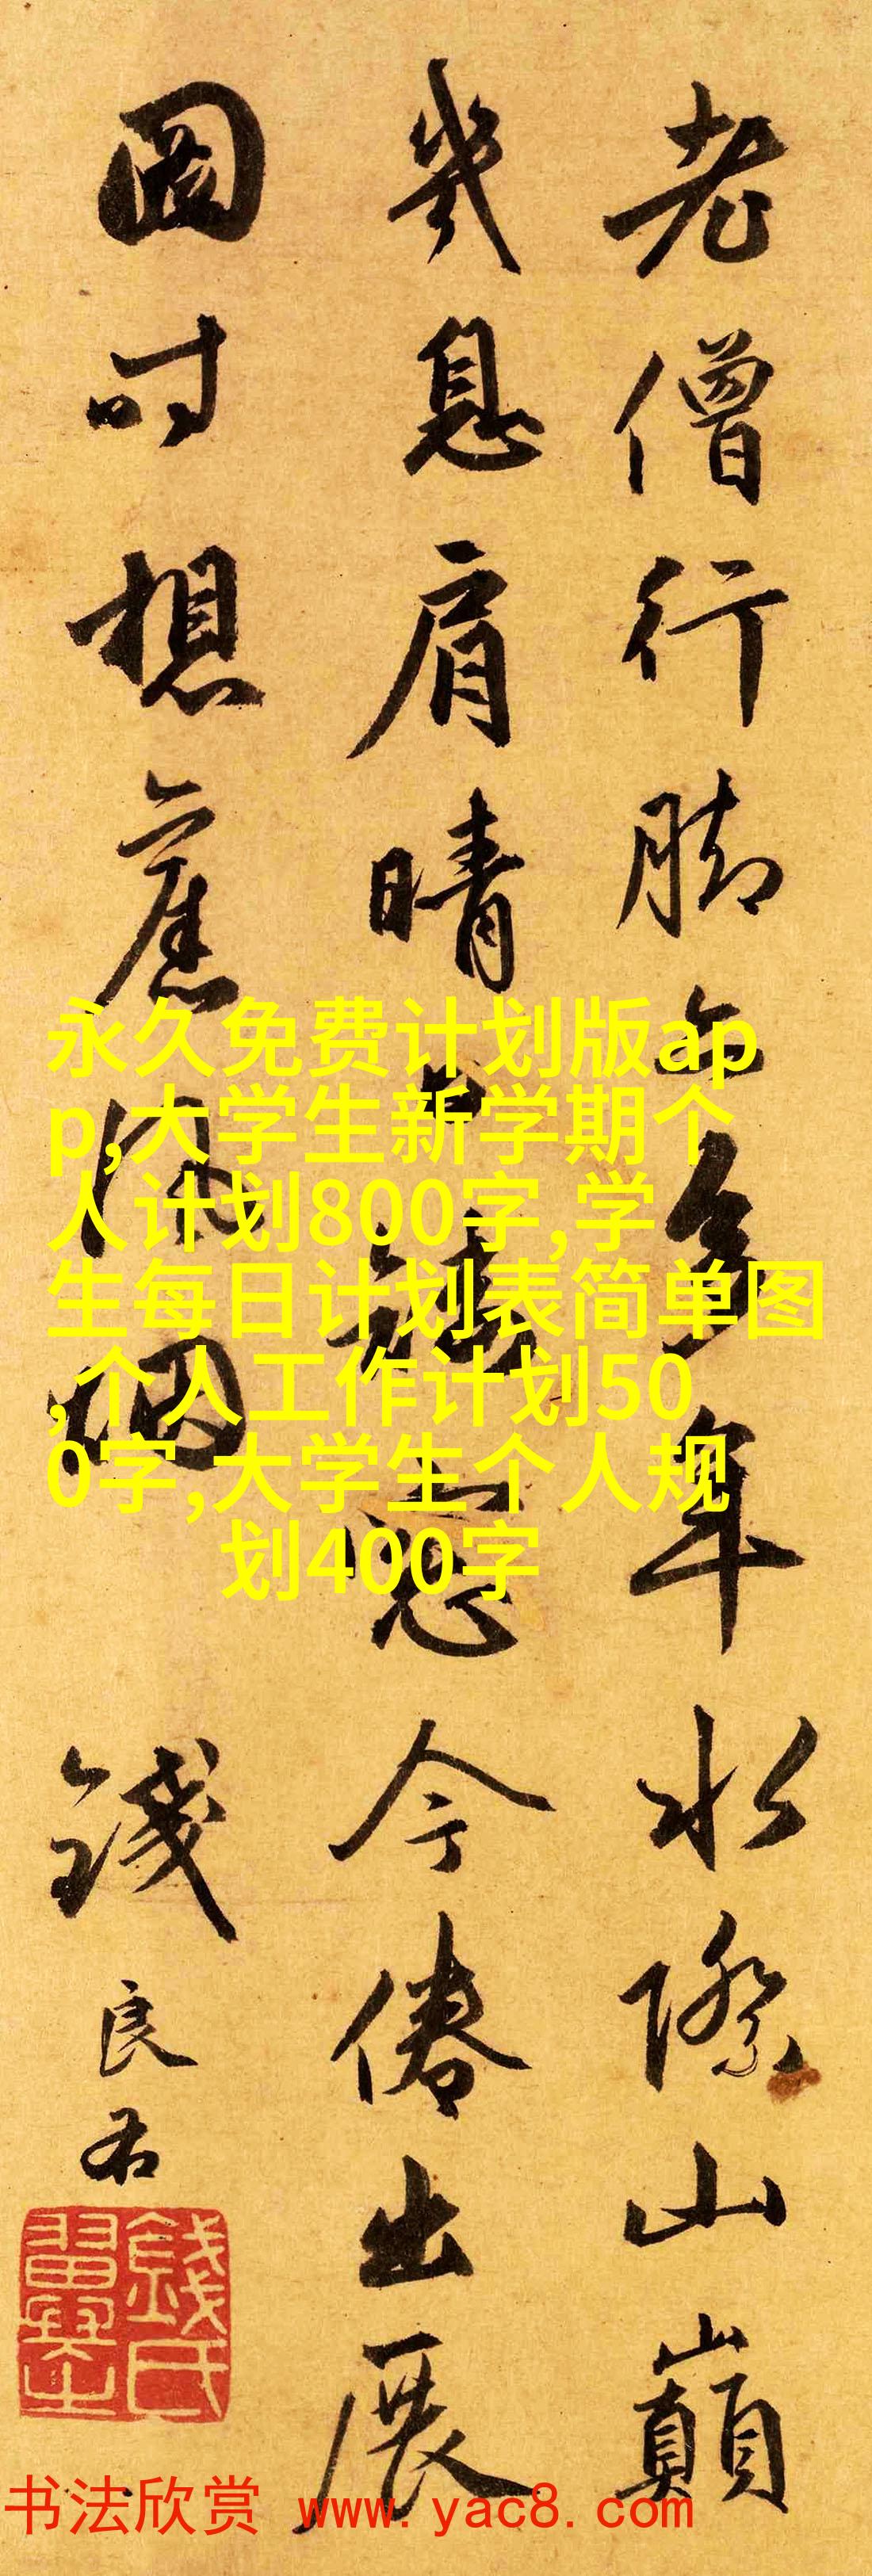 老僧行脚多年水際山巔
幾息肩晴日矮窓今倦出展
圖時想舊風烟
錢良右
錢氏翼之
永久免费计划版ap
p,大学生新学期个
人计划800字,学
生每日计划表简单图
,个人工作计划50
0字,大学生个人规
划400字
书法欣赏 www.yac8.com